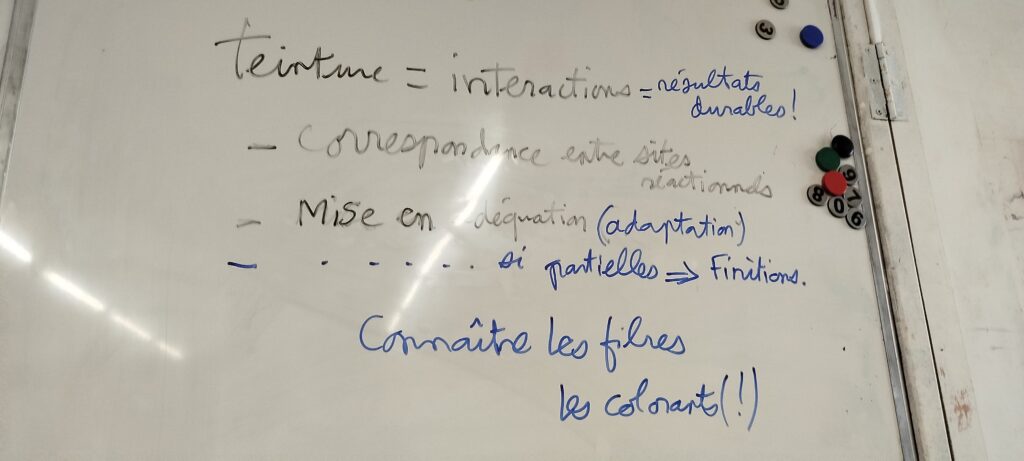 teinture = interactions = résultats
durables!
- Correspondance entre sites
réactionnels
- Mise en adéquation (adaptation)
- . - - - . . si partielles => Finitions.
Connaître les fibres
les colorants(!)
3
8 0 1 6 9